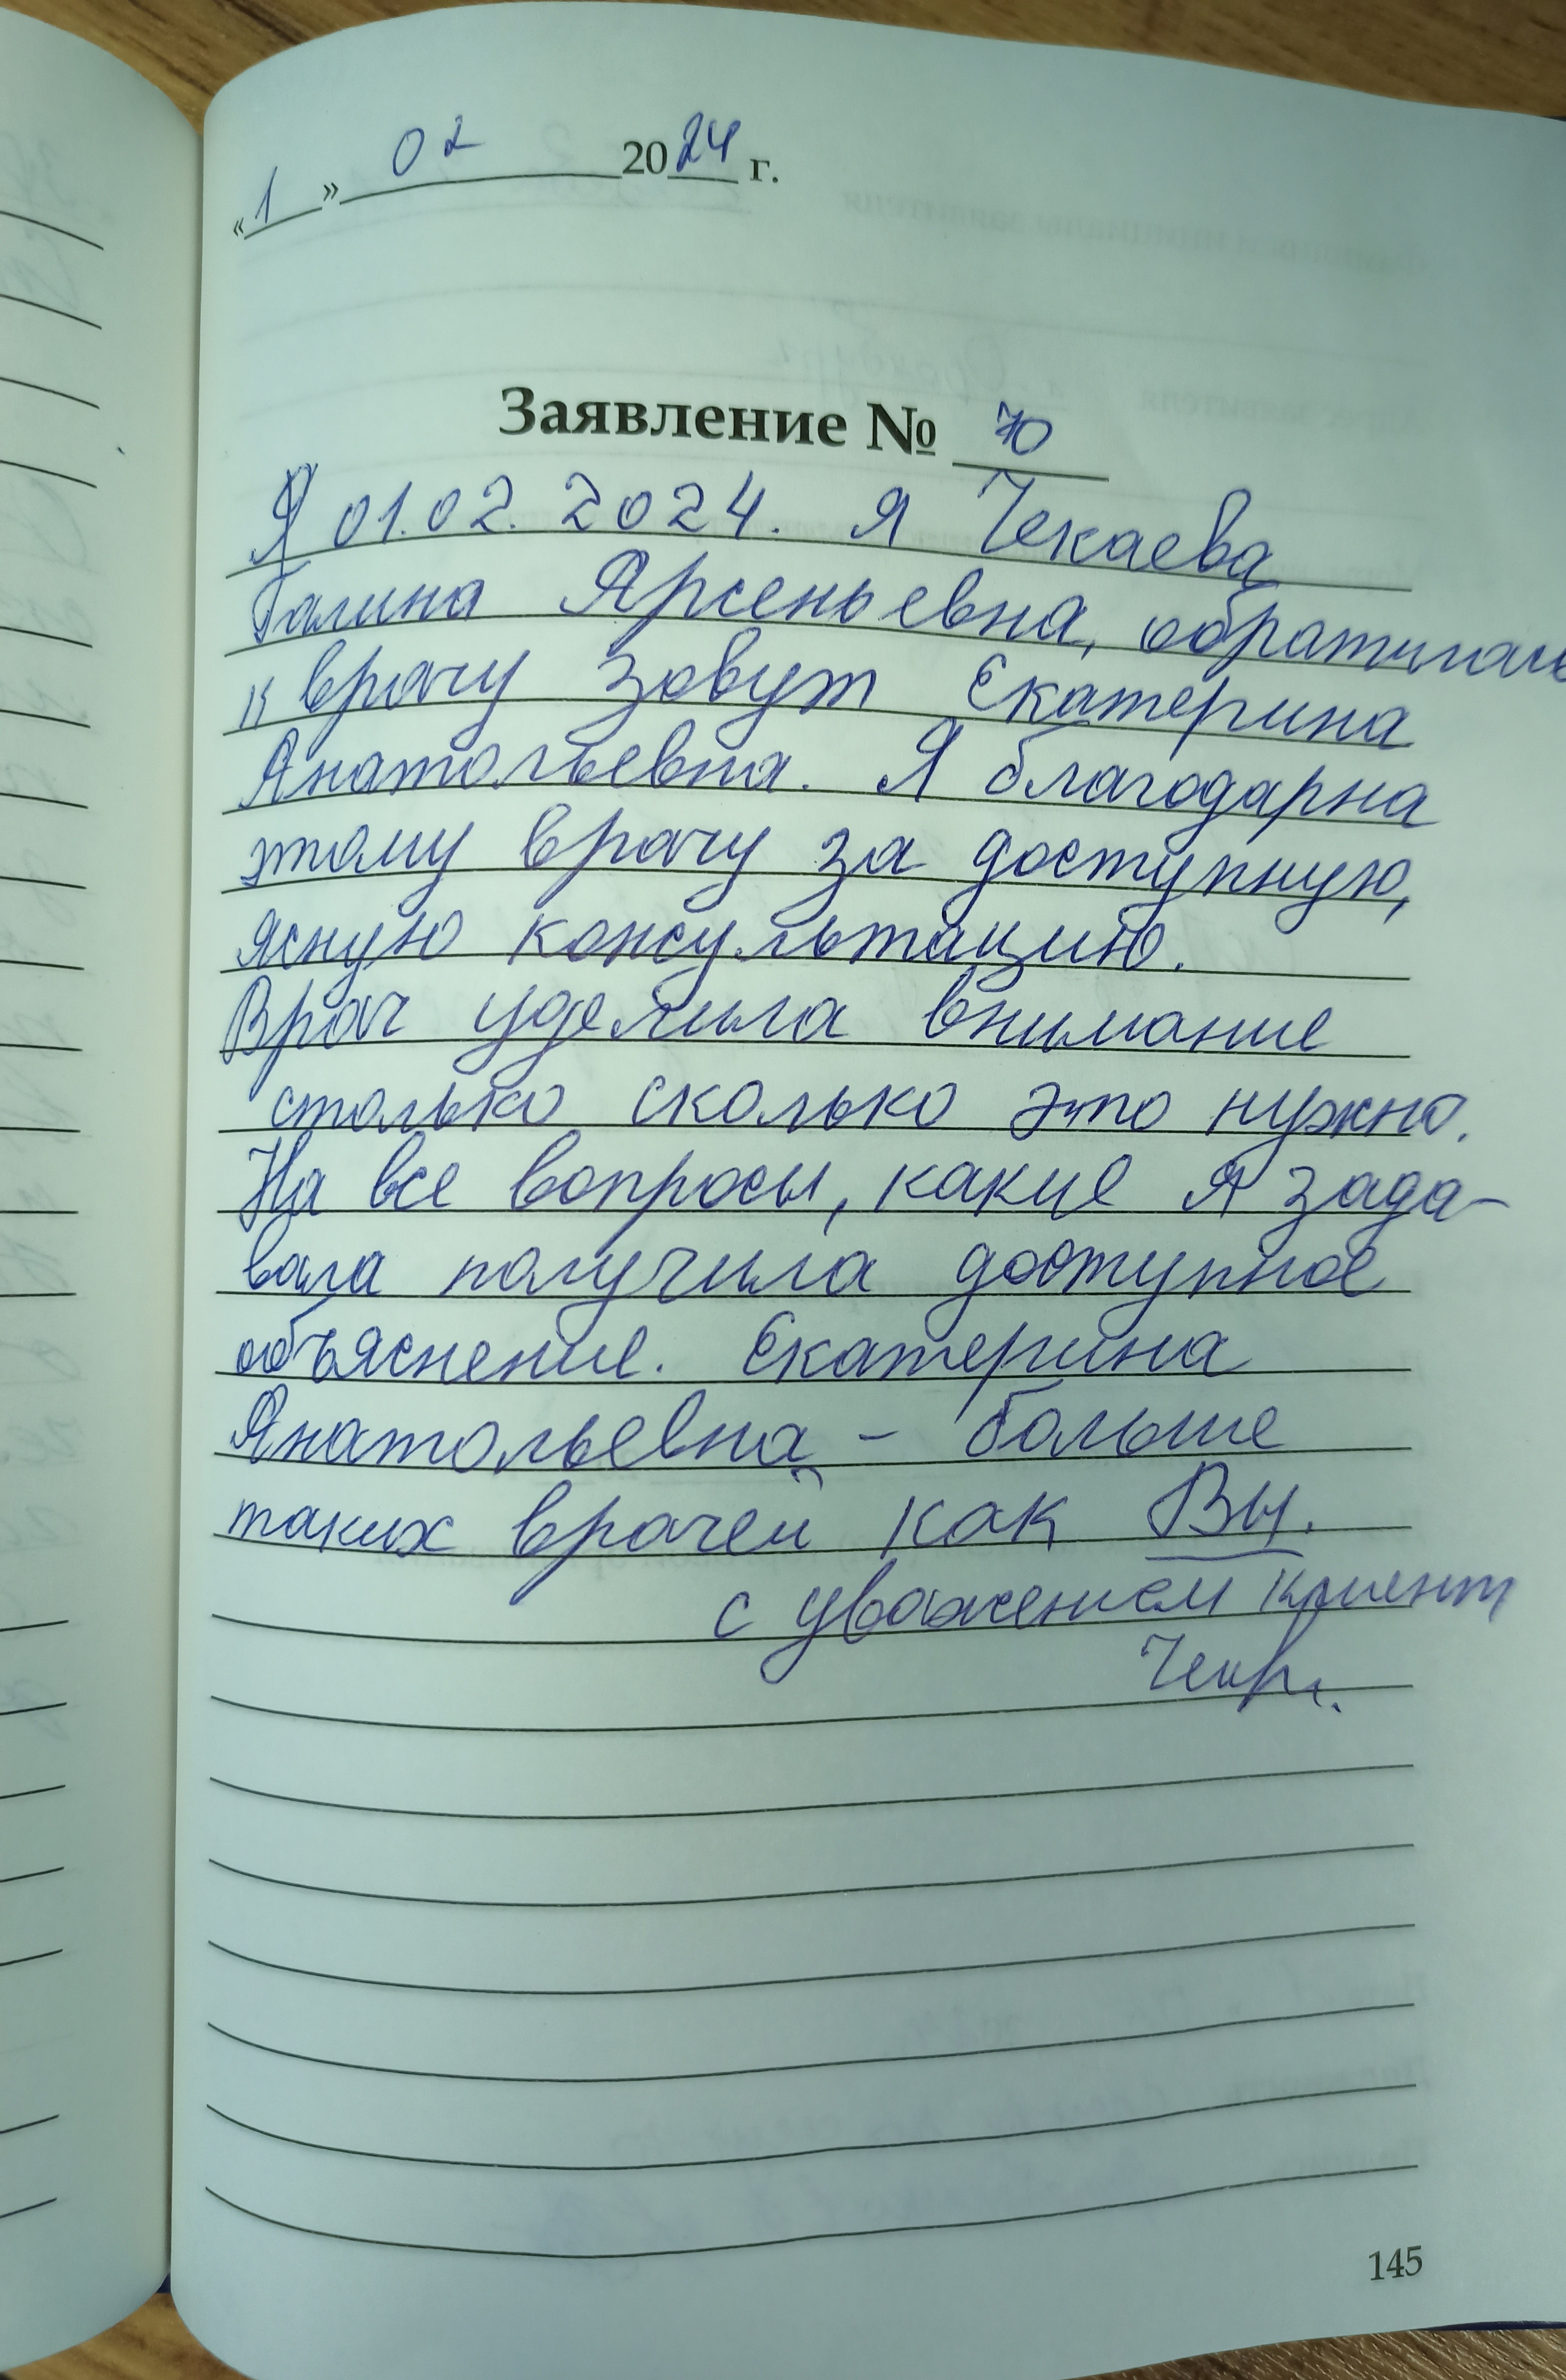 «1» 02 2024 г.
Заявление № 70
Я 01.02.2024. Я Чекаева
Галина Арсеньевна, обратилась
к врачу зовут Екатерина
Анатольевна. Я благодарна
этому врачу за доступную,
ясную консультацию.
Врач уделила внимание
столько сколько это нужно.
На все вопросы, какие я зада-
вала получила доступное
объяснение. Екатерина
Анатольевна – больше
таких врачей как Вы.
с уважением клиент
145